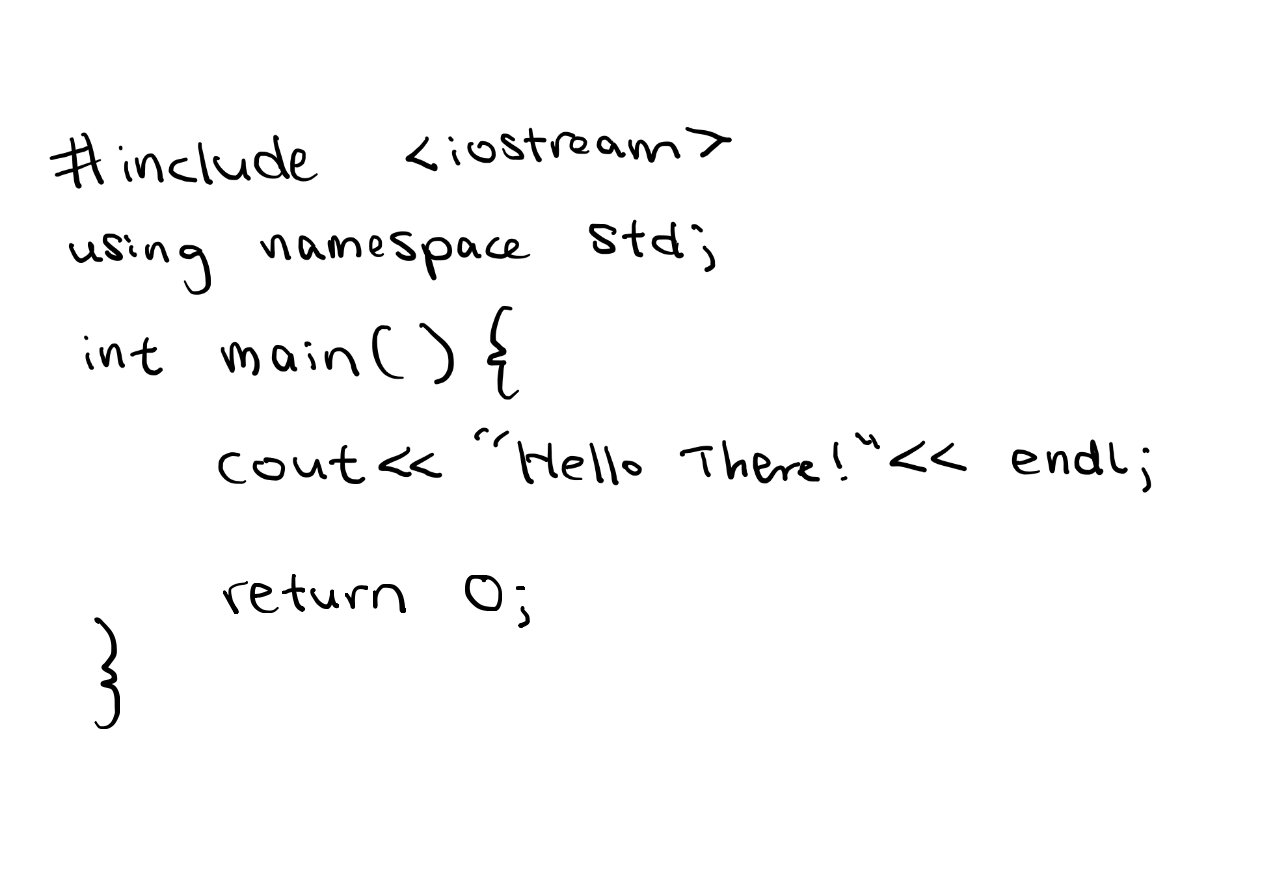 #include <iostream>
using namespace std;
int main() {
cout<< "Hello There!"<< endl;
return 0;
}